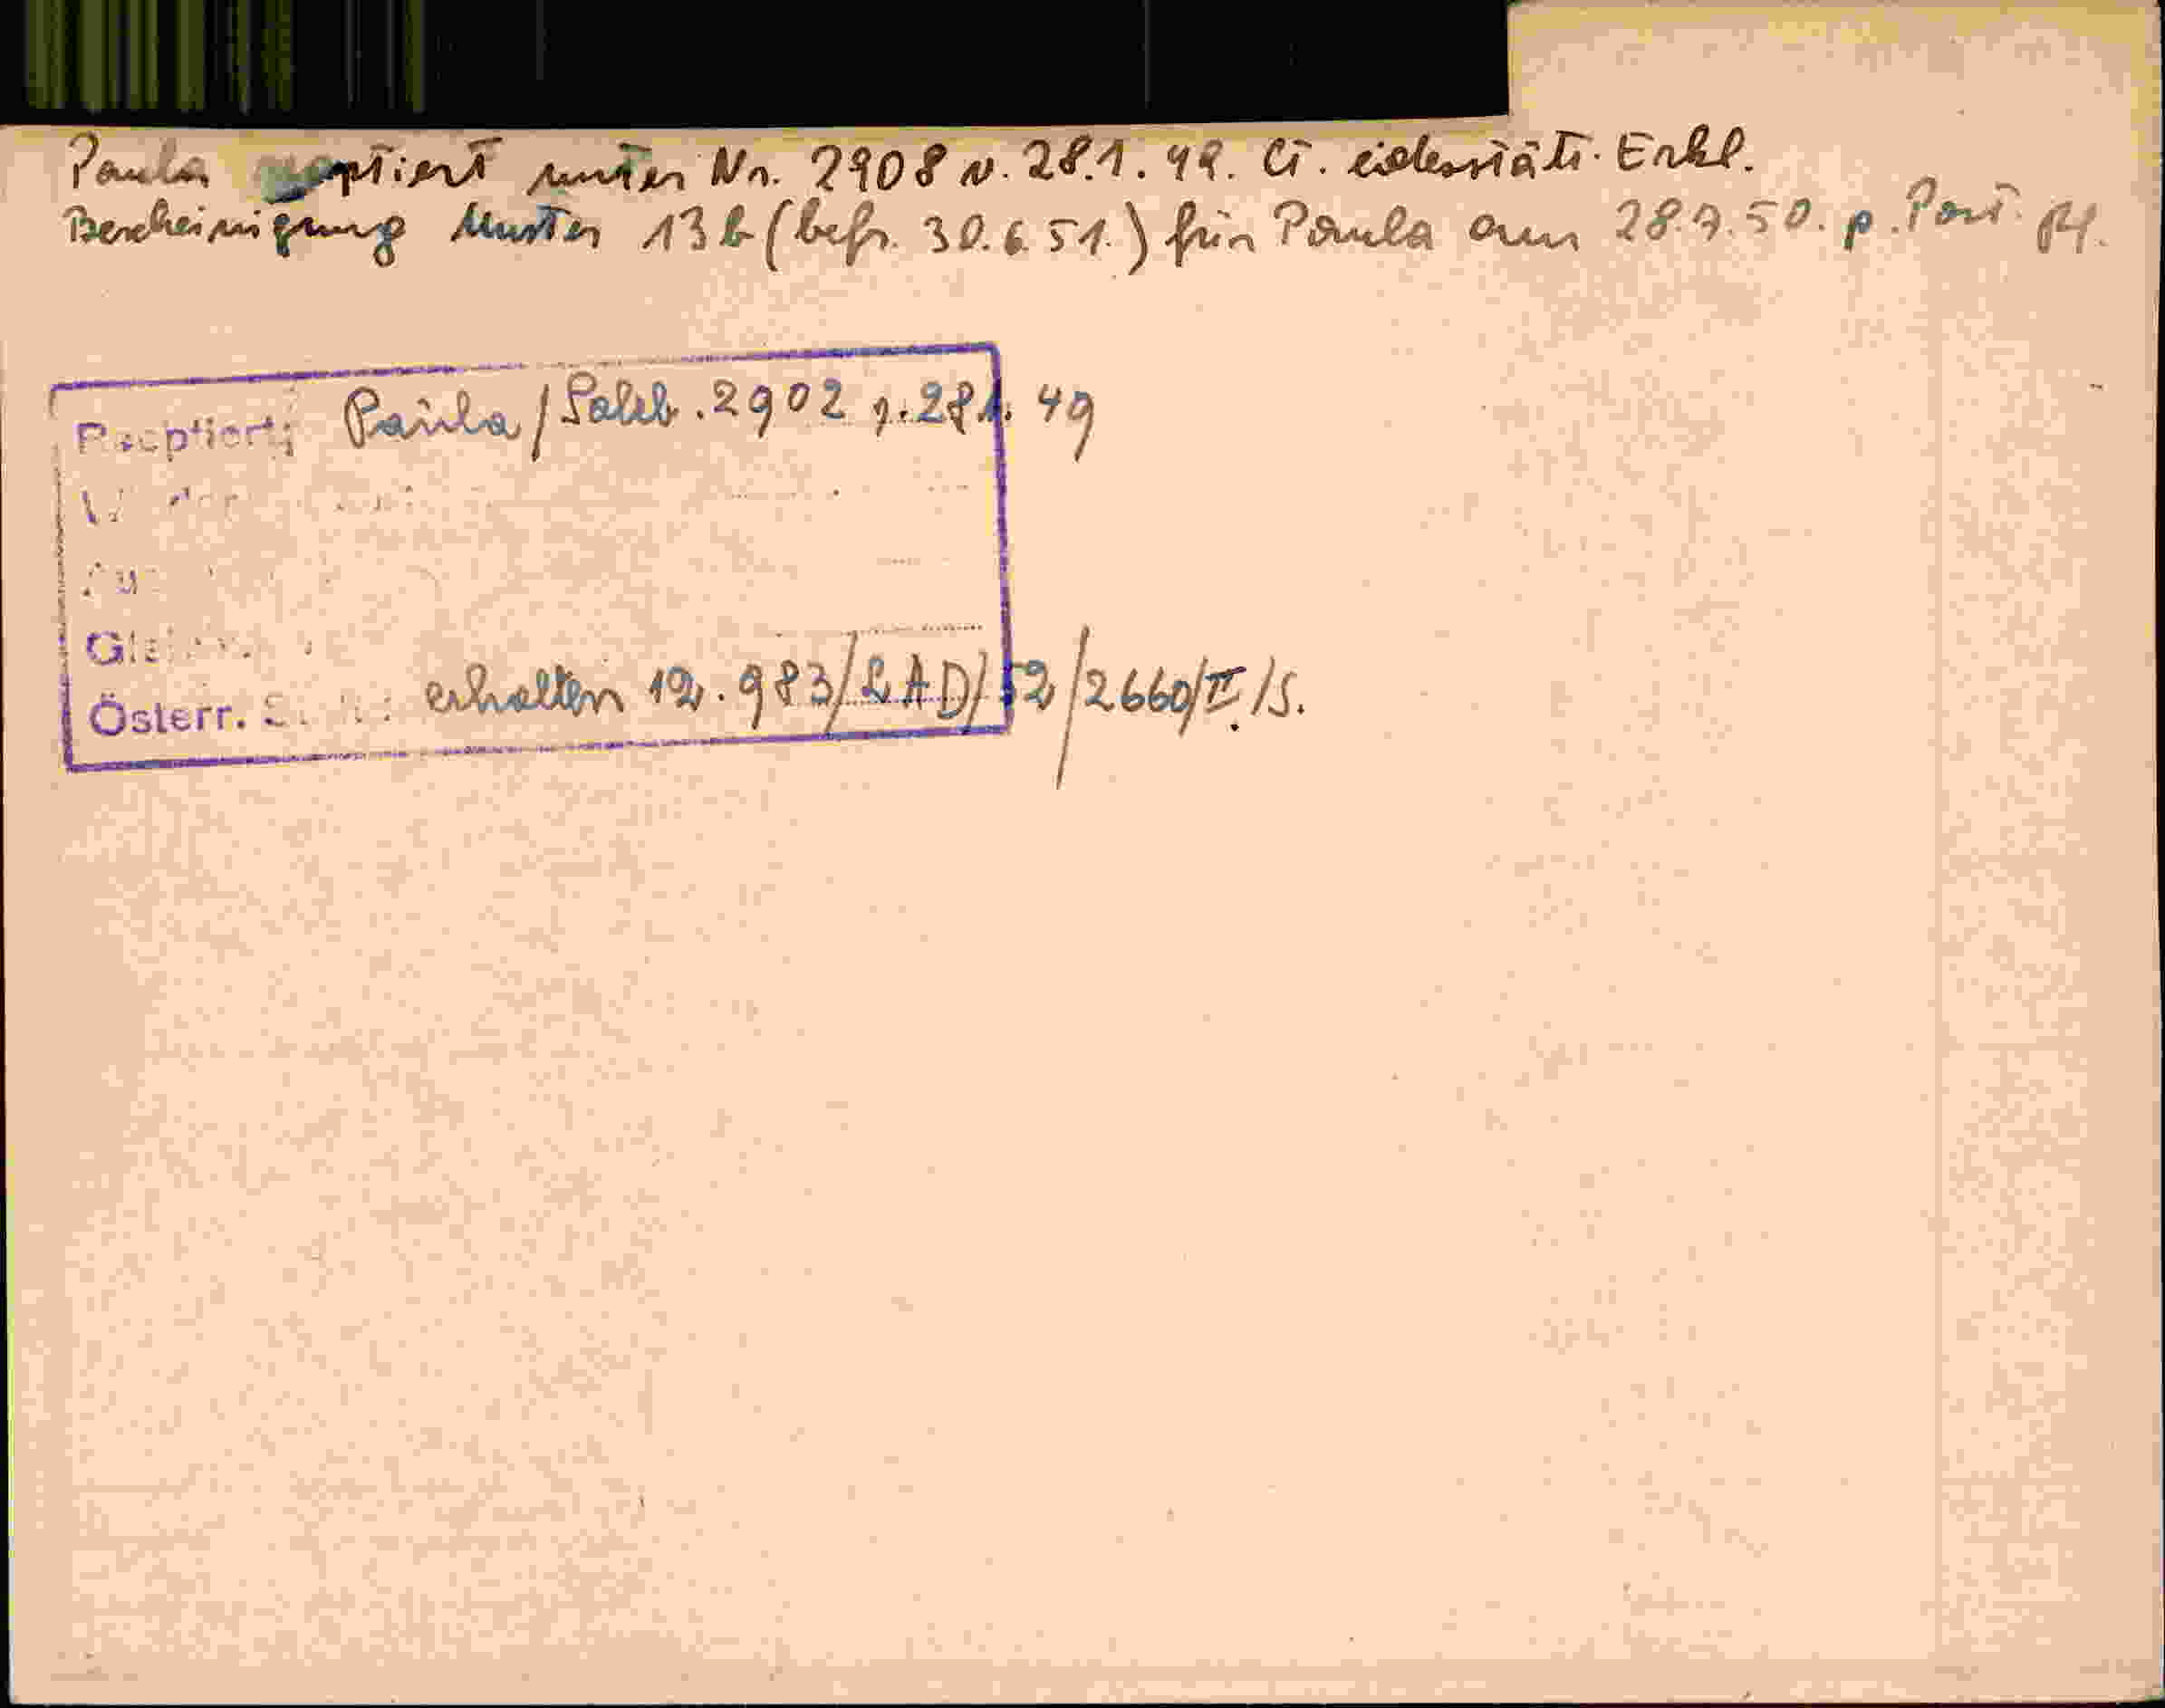 Paula reoptiert unter Nr. 2908 v. 28.1.49. lt. eidesstätt. Erkl.
Bescheinigung Muster 13b (befr. 30.6.51.) für Paula am 28.7.50. p. Post
Reoptiert: Paula / 2902 v. 28.1.49
Österr. erhalten 12.983/LAD/52/2660/II./S.